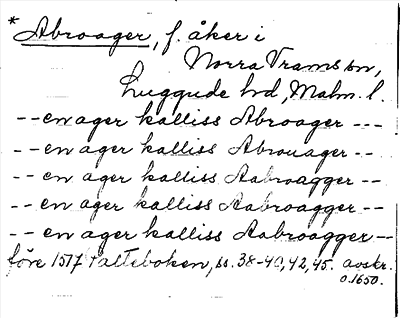 *Abroager, f. åker i
Norra Vrams sn,
Luggude hd, Malm. l.
--en ager kalliss Abroager ---
--en ager kalliss Abrouager--
-- en ager kalliss Aabroagger --
-- en ager kalliss Aabroagger --
-- en ager kalliss Aabroagger--
före 1517 Palteboken, ss. 38-40, 42, 45. avskr.
o. 1650.